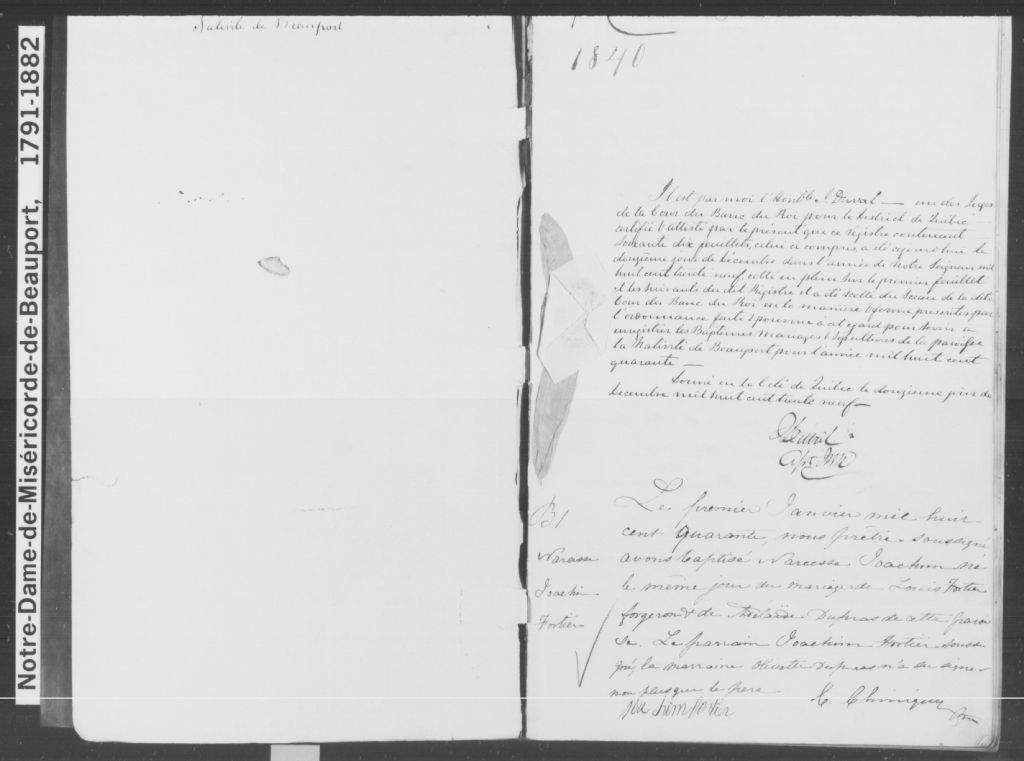 Notre-Dame-de-Miséricorde-de-Beauport, 1791-1882
Nativité de Beauport
1840
Il est par moi l'Honble J. Duval — un des Juges
de la Cour du Banc du Roi pour le District de Québec
certifié & attesté par le présent que ce régistre contenant
soixante dix feuillets, celui ci compris, a été ce jourd'hui le
douzième jour de Décembre dans l'année de Notre Seigneur mil
huit cent trente neuf, cotté en plein sur le premier feuillet
et les suivants du dit Régistre et a été scellé du Sceau de la dite
Cour du Banc du Roi en la manière & forme prescrites par
l'ordonnance faite & pourvue à cet égard pour servir a
enregistrer les Baptemes Mariages & Sepultures de la paroisse
la Nativité de Beauport pour l'année mil huit cent
quarante —
Donné en la Cité de Québec le douzième jour de
Decembre mil huit cent trente neuf —
Duval
B1
Narcisse
Joachim
Fortier
Le premier Janvier mil huit
cent quarante, nous prêtre soussigné
avons baptisé Narcesse Joachim né
le même jour du mariage de Louis Fortier
forgeron & de Adelaïde Dupras de cette parois
se. Le parrain Joachim Fortier soussi
gné, la marraine Olivette Dupras n'a su signer
non plus que le pere
Joachim fortier
C. Chiniquy Ptre